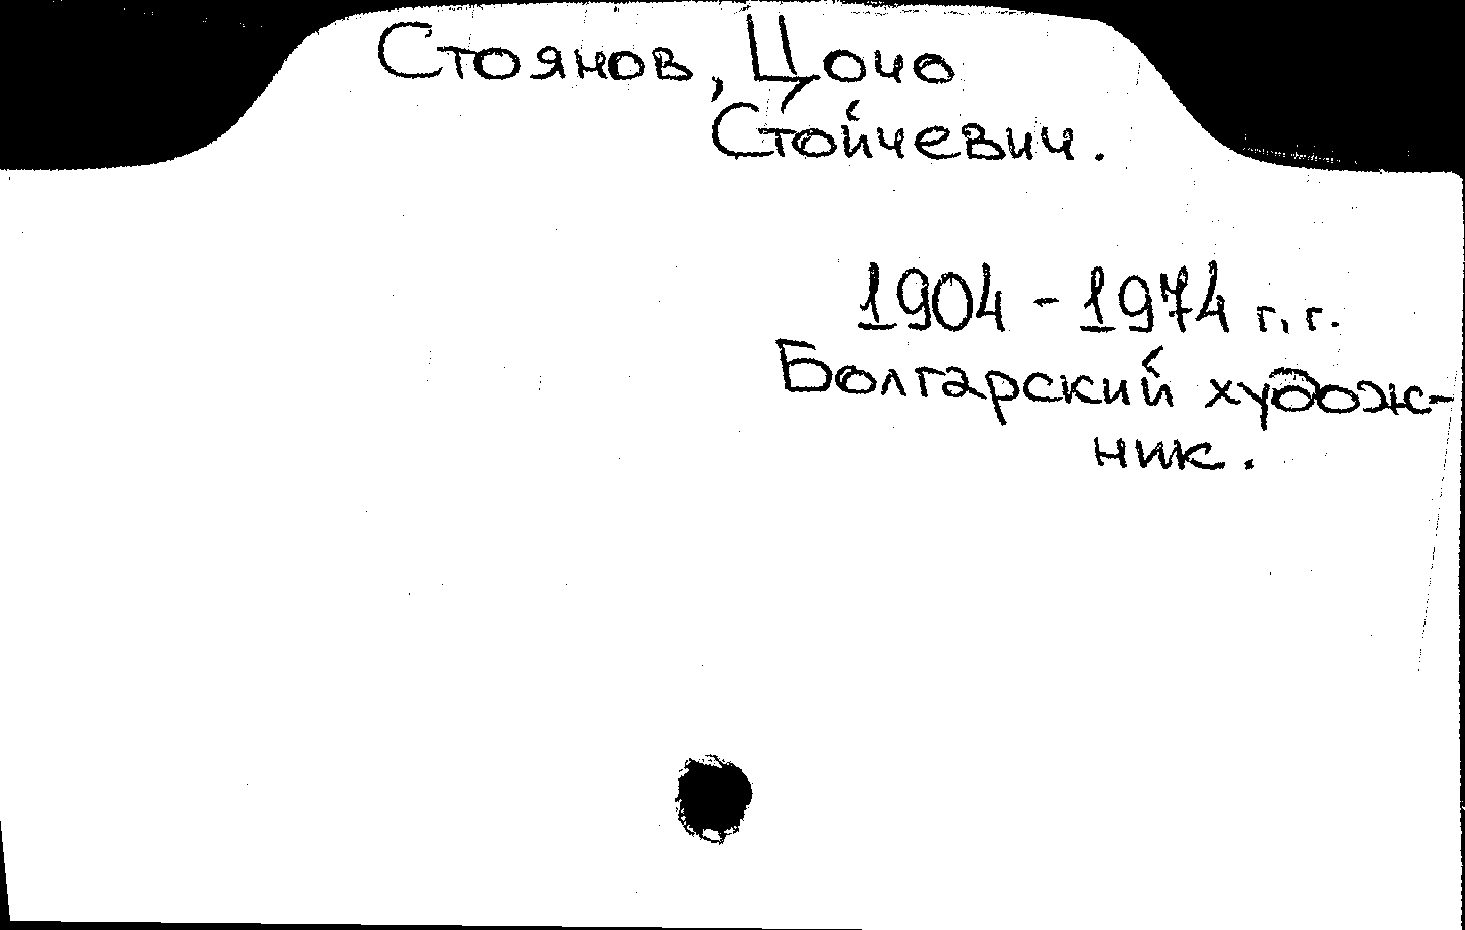 Стоянов, Цочо
Стойчевич.
1904 - 1974 г.г.
Болгарский худож-
ник.